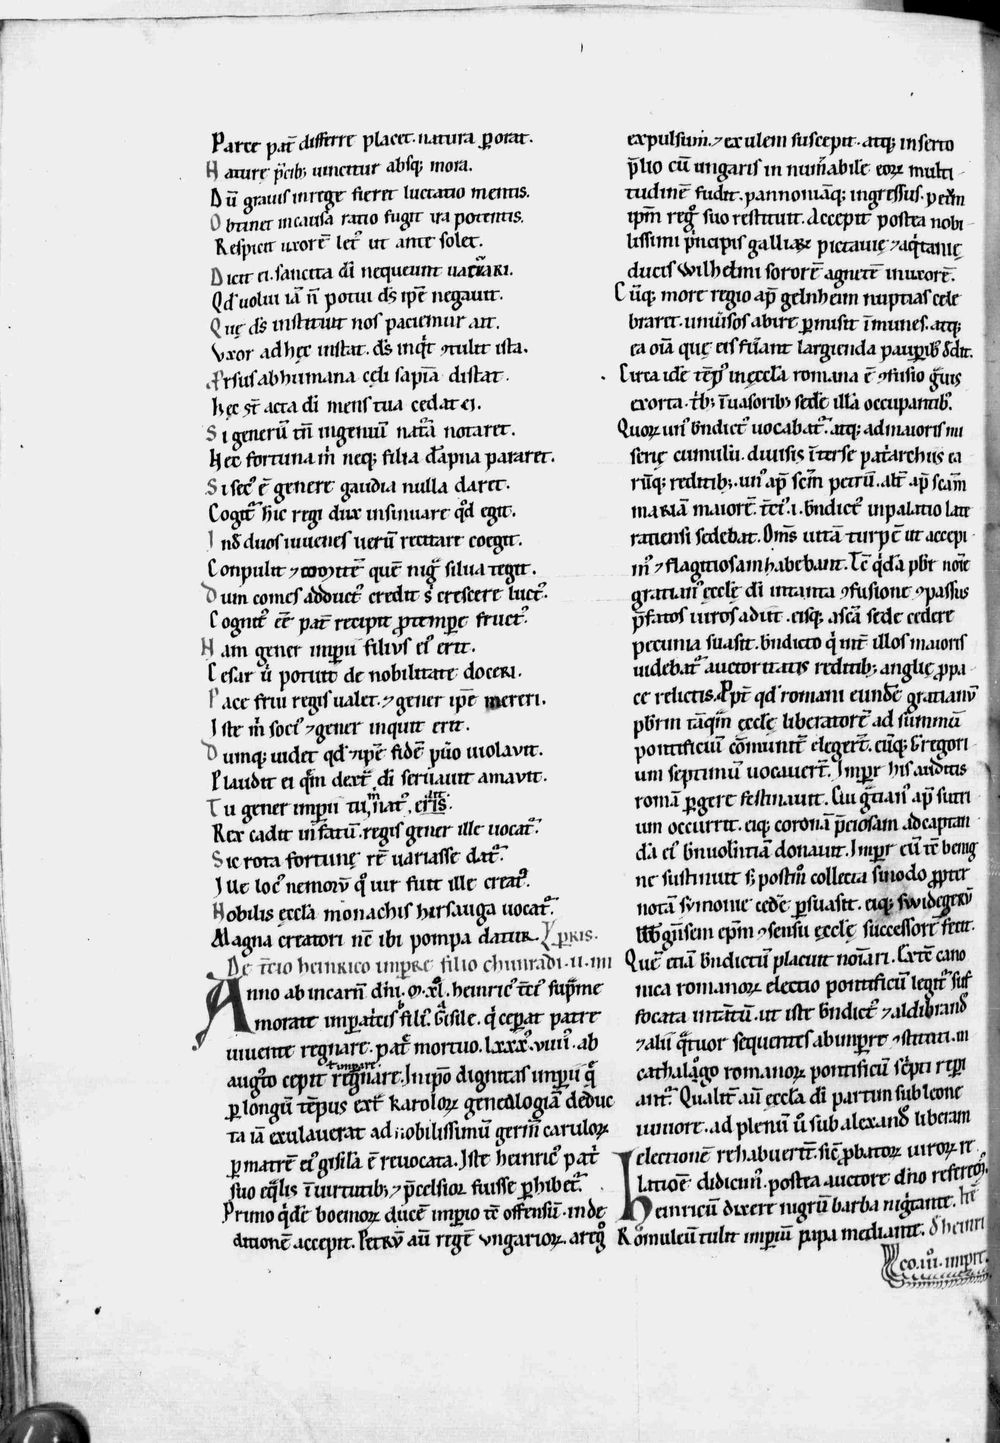 Parce pat̄ differre placet. natura ꝑorat.
Naturę p̄cib; uincitur absq; mora.
Dū grauis in rege fieret luctatio mentis.
Obtinet in causa ratio fugit ira potentis.
Respicit uxorē let᷒ ut ante solet.
Dicit ei. sancita dī nequeunt uariari.
Qd̄ uolui iā n̄ potui ds̄ ip̄e negauit.
Quę ds̄ instituit nos paciemur ait.
Vxor ad hęc instat. ds̄ inqͥt ꝯtulit ista.
Ersus ab humana cędi sapīa distat.
hęc st̄ acta dī mens tua cedat ei.
Si generū tn̄ ingenuū nat᷒a notaret.
Hec fortuna m̄ neq; filia dāpna pararet.
Si sec᷒ ē genere gaudia nulla daret.
Cogit᷒ hic regi dux insinuare qͦd egit.
Ind̄ duos iuuenes uerū recitare coegit.
Conpulit ⁊ comitē quē nigͣ silua tegit.
Dum comes adduct᷒ credit s̄ crescere luct᷒.
Cognit᷒ eē pat̄ recipit ꝓ tempore fruct᷒.
Nam gener imperii filius ei᷒ erit.
Cesar ū potuit de nobilitate doceri.
Pace frui regis ualet. ⁊ gener ip̄e mereri.
Iste m̄ soci᷒ ⁊ gener inquit erit.
Dumq; uidet qd̄ ⁊ ip̄e fidē p̄uio uiolauit.
Plaudit ei qm̄ dext᷒ dī seruauit amauit.
Tu gener imperii tu m̄ nat᷒, eris.
Rex cadit in fatū. regis gener ille uocat᷒.
Sic rota fortunę rē uariasse dat᷒.
Ille loc᷒ nemorū qͦ uir fuit ille creat᷒.
Nobilis ęcclā monachis hirsauga uocat᷒.
Magna creatori nc̄ ibi pompa datur.
De t̄cio heinrico imp̄re filio chūnradi. ii.
Anno ab incarn̄ dn̄i. ꝏ. xl. heinric᷒ t̄ci᷒ sup̄me
morate imperat̄cis filı᷒. Gisile. qͥ cep̄at patre
uiuente regnare. pat̄ mortuo. lxxx᷒. viiii. ab
augt̄o cepit regnare. In ipō dignitas imperii qͣ
ꝑ longū temp᷒ ext̄ Karoloꝝ genealogiā deduc
ta iā exulauerat ad nobilissimū germ̄ caruloꝝ
ꝑ matrē ei᷒ gisilā ē reuocata. Iste heinric᷒ pat̄
suo eqͣlis ī uirtutib; ⁊ p̄celsior fuisse ꝑhibet᷒.
Primo qͥdē boemoꝝ ducē imperio tē offensū. in de
ditionē accepit. Petrū aū regē ungarioꝝ. a regͦ
expulsum. ⁊ exulem suscepit. atq; inserto
p̄lio cū ungaris innum̄abilē eoꝝ multi
tudinē fudit. pannoniāq; ingressus. petrū
ipm̄ regͦ suo restituit. Accepit postea nobi
lissimi pͥncipis galliaꝝ pictauię ⁊ aqͥtanię
ducis Wilhelmi sororē agnetē in uxorē.
Cūq; more regio ap̄ gelnheim nuptias cele
braret. uniūsos abire ꝑmisit īmunes. atq;
ea oīa quę eis fūant largienda pauꝑib᷒ ddit.
Circa idē tēp᷒ in ęccla romana ē ꝯfusio gͣuis
exorta. tͥb; īuasorib; sedē illā occupantib᷒.
Quoꝝ un᷒ bn̄dict᷒ uocabat᷒. atq; ad maioris mi
serię cumulū. diuisis īter se patͥarchiis ea
rūq; reditib;. un᷒ ap̄ scm̄ petrū. alt̄ ap̄ scam̄
mariā maiorē. t̄ci᷒. i. bn̄dict᷒ in palatio late
ratiensi sedebat. Oms̄ uitā turpē ut accepi
m᷒ ⁊ flagitiosam habebant. Tc̄ qͥdā pbr̄ noīe
gratian᷒ ęcclę dī in tanta ꝯfusione ꝯpassus
p̄fatos uiros adiit. eisq; a scā sede cedere
pecunia suasit. bn̄dicto qͥ int̄ illos maioris
uidebat᷒ auctoritatis reditib; anglię ꝓpa
ce relictis. Ppt̄ qd̄ romani eundē gratianū
pbr̄m tāqm̄ ęcclę liberatorē ad summū
pontificiū cōmunit̄ elegert̄. eūq; Gregori
um septimū uocauert̄. Impr̄ his auditis
romā ꝑgere festinauit. Cui gͣtian᷒ ap̄ sutri
um occurrit. eiq; coronā p̄ciosam ad captan
dā ei᷒ bn̄uolentiā donauit. Impr̄ eū tē benig
ne sustinuit s; postm̄ collecta sinodo ꝓpter
notā symonie cedē ꝑsuasit. eiq; swidegerū
babbg̅nsem ep̄m ꝯsensu ęcclę successorē fecit.
Quē etiā bn̄dictū placuit noīari. Ex tē cano
nica romanoꝝ electio pontificū legit̄ suf
focata intātū. ut iste bn̄dict᷒ ⁊ aldibrand᷒
⁊ alii qͣtuor sequentes ab imp̄re ꝯstituti. in
cathalago romanoꝝ pontificū scͥpti repͥi
ant᷒. Qualit̄ aū ęccla dī partim sub leone
iuniore. ad plenū ū sub alexandͦ liberam
electionē rehabuerit. sic̄ ꝓbatoꝝ uiroꝝ re
latione didicim᷒. postea auctore dn̄o referem᷒.
Heinricum dixere nigrū barba nigͣtante.
Romuleū tulit imperiū papa mediante.